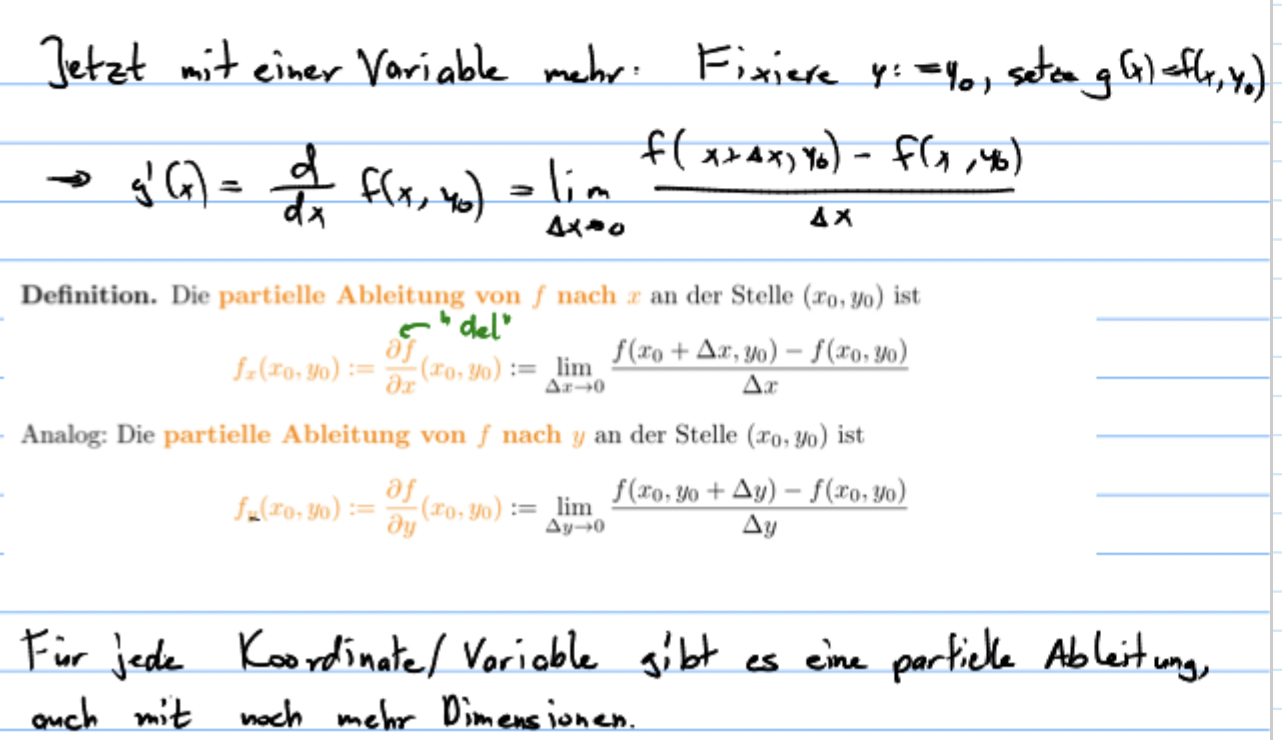 Jetzt mit einer Variable mehr: Fixiere y:=y₀, setze g(x)=f(x,y₀)
→ g'(x) = d/dx f(x, y₀) = lim_{Δx→0} (f(x+Δx, y₀) - f(x, y₀)) / Δx
Definition. Die partielle Ableitung von f nach x an der Stelle (x₀, y₀) ist
← "del"
f_x(x₀, y₀) := ∂f/∂x (x₀, y₀) := lim_{Δx→0} (f(x₀ + Δx, y₀) − f(x₀, y₀)) / Δx
Analog: Die partielle Ableitung von f nach y an der Stelle (x₀, y₀) ist
f_y(x₀, y₀) := ∂f/∂y (x₀, y₀) := lim_{Δy→0} (f(x₀, y₀ + Δy) − f(x₀, y₀)) / Δy
Für jede Koordinate/Variable gibt es eine partielle Ableitung,
auch mit noch mehr Dimensionen.